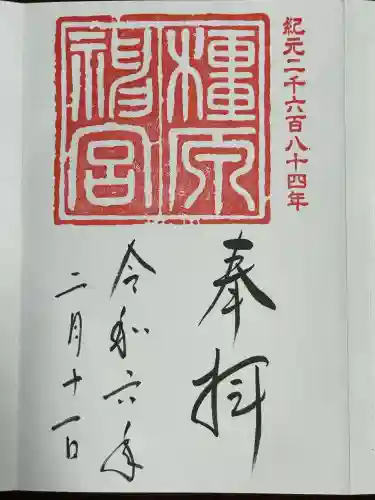 紀元二千六百八十四年
橿原
神宮
奉拝
令和六年
二月十一日